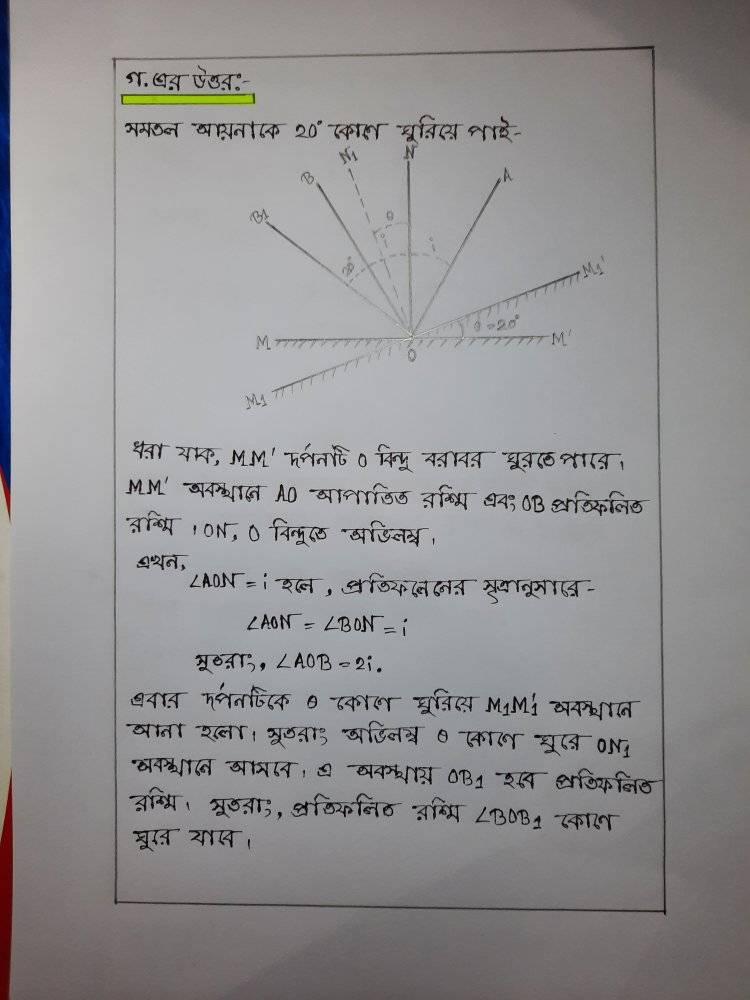 গ. এর উত্তর:-
সমতল আয়নাকে 20° কোণে ঘুরিয়ে পাই-
N1
N
B
A
B1
θ
i
i
20°
M1'
θ=20°
M
M'
O
M1
ধরা যাক, MM' দর্পনটি O বিন্দু বরাবর ঘুরতে পারে।
MM' অবস্থানে AO আপাতিত রশ্মি এবং OB প্রতিফলিত
রশ্মি । ON, O বিন্দুতে অভিলম্ব।
এখন,
∠AON = i হলে, প্রতিফলেনের সূত্রানুসারে-
∠AON = ∠BON = i
সুতরাং, ∠AOB = 2i.
এবার দর্পনটিকে θ কোণে ঘুরিয়ে M1M1' অবস্থানে
আনা হলো। সুতরাং অভিলম্ব θ কোণে ঘুরে ON1
অবস্থানে আসবে। এ অবস্থায় OB1 হবে প্রতিফলিত
রশ্মি। সুতরাং, প্রতিফলিত রশ্মি ∠BOB1 কোণে
ঘুরে যাবে।